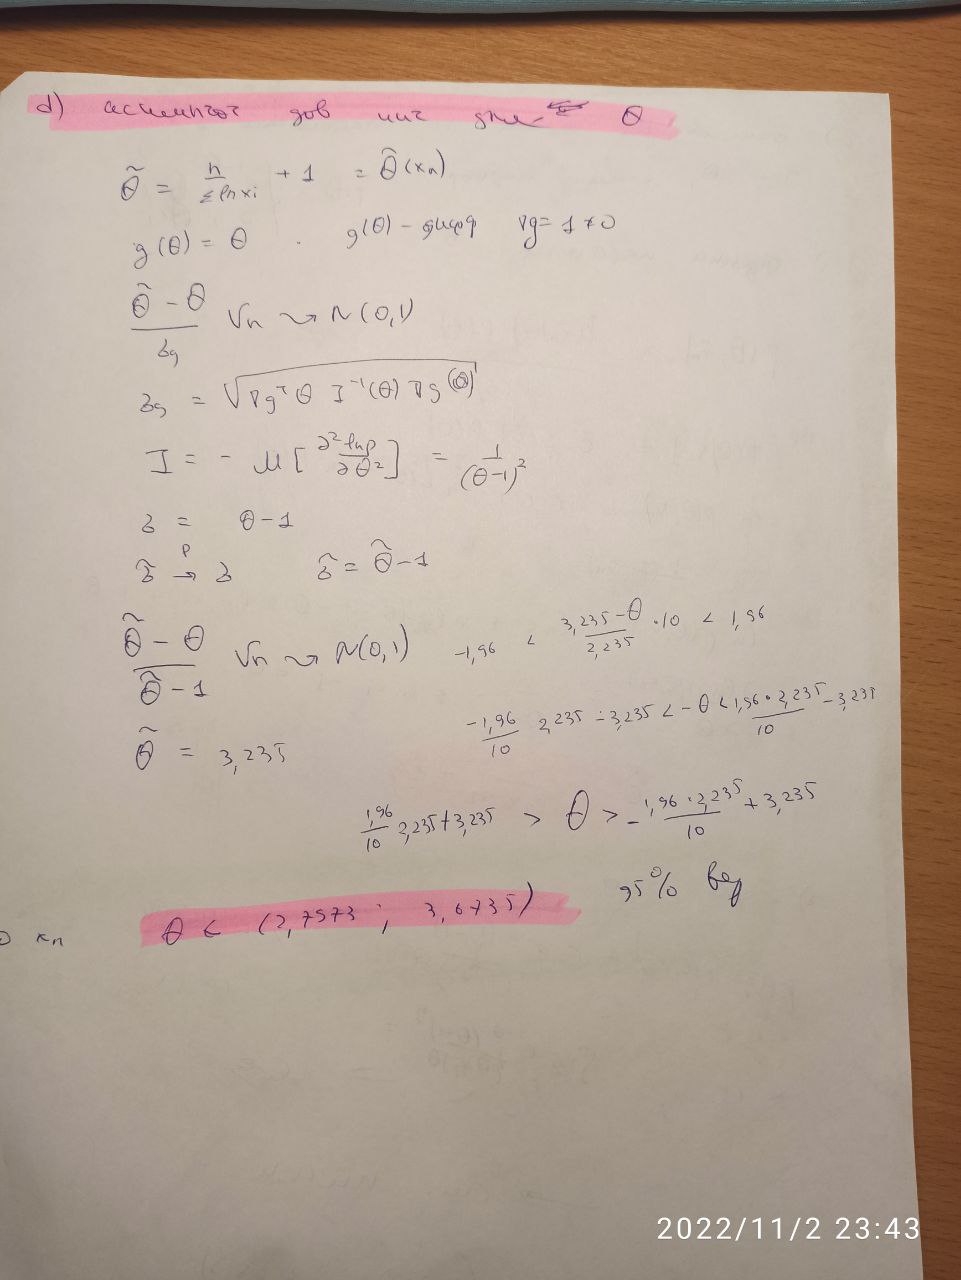 d) асимптот дов инт для θ
θ̃ = n / Σ ln xi + 1 = θ̃(xn)
g(θ) = θ . g(θ) - дифф ∇g = 1 ≠ 0
(θ̃ - θ) / σg √n ⇝ N(0,1)
σg = √(∇gᵀ θ I⁻¹(θ) ∇g(θ))
I = - M [∂² ln p / ∂θ²] = 1 / (θ-1)²
σ = θ-1
σ̃ →p σ σ̃ = θ̃-1
(θ̃ - θ) / (θ̃ - 1) √n ⇝ N(0,1) -1,96 < (3,235-θ) / 2,235 · 10 < 1,96
-1,96 / 10 2,235 - 3,235 < -θ < 1,96 · 2,235 / 10 - 3,235
θ̃ = 3,235
1,96 / 10 2,235 + 3,235 > θ > - 1,96 · 2,235 / 10 + 3,235
95% вер
θ ∈ (2,7973 ; 3,6735)
xn
2022/11/2 23:43